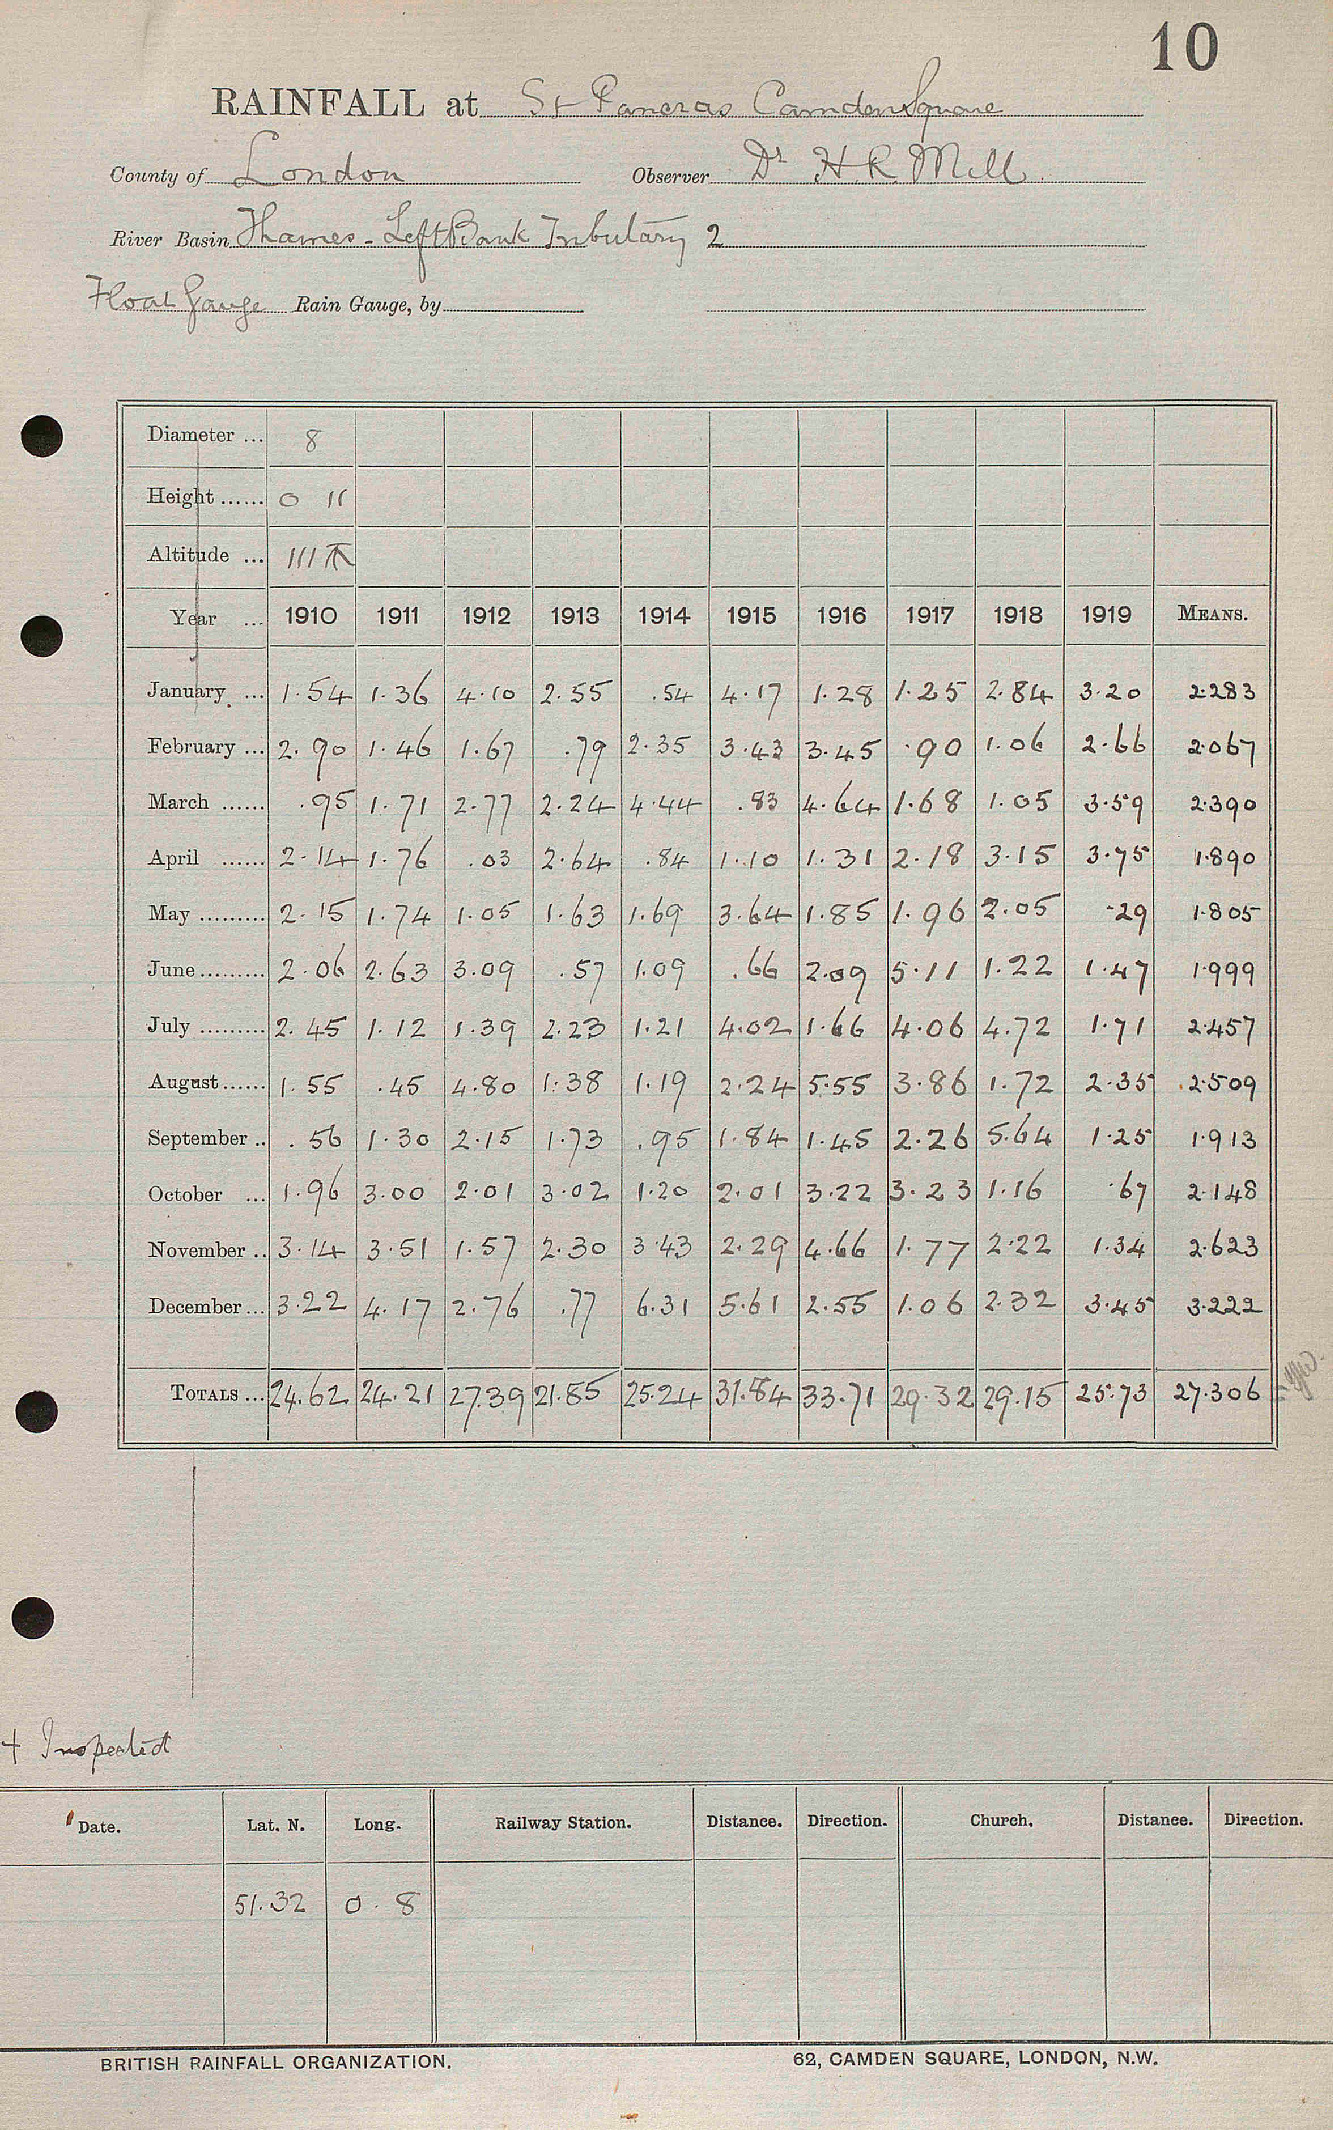 10
RAINFALL at St Pancras Camden Square
County of London Observer Dr H R Mill
River Basin Thames - Left Bank Tributary 2
Float Gauge Rain Gauge, by
Diameter ... 8
Height ...... 0 11
Altitude ... 111 ft
Year ... 1910 1911 1912 1913 1914 1915 1916 1917 1918 1919 MEANS.
January ... 1.54 1.36 4.10 2.55 .54 4.17 1.28 1.25 2.84 3.20 2.283
February ... 2.90 1.46 1.67 .79 2.35 3.43 3.45 .90 1.06 2.66 2.067
March ...... .95 1.71 2.77 2.24 4.44 .83 4.64 1.68 1.05 3.59 2.390
April ...... 2.14 1.76 .03 2.64 .84 1.10 1.31 2.18 3.15 3.75 1.890
May ......... 2.15 1.74 1.05 1.63 1.69 3.64 1.85 1.96 2.05 .29 1.805
June ......... 2.06 2.63 3.09 .57 1.09 .66 2.09 5.11 1.22 1.47 1.999
July ......... 2.45 1.12 1.39 2.23 1.21 4.02 1.66 4.06 4.72 1.71 2.457
August ...... 1.55 .45 4.80 1.38 1.19 2.24 5.55 3.86 1.72 2.35 2.509
September .. .56 1.30 2.15 1.73 .95 1.84 1.45 2.26 5.64 1.25 1.913
October ... 1.96 3.00 2.01 3.02 1.20 2.01 3.22 3.23 1.16 .67 2.148
November .. 3.14 3.51 1.57 2.30 3.43 2.29 4.66 1.77 2.22 1.34 2.623
December ... 3.22 4.17 2.76 .77 6.31 5.61 2.55 1.06 2.32 3.45 3.222
TOTALS ... 24.62 24.21 27.39 21.85 25.24 31.84 33.71 29.32 29.15 25.73 27.306
+ Inspected
Date. Lat. N. Long. Railway Station. Distance. Direction. Church. Distance. Direction.
51.32 0.8
BRITISH RAINFALL ORGANIZATION. 62, CAMDEN SQUARE, LONDON, N.W.